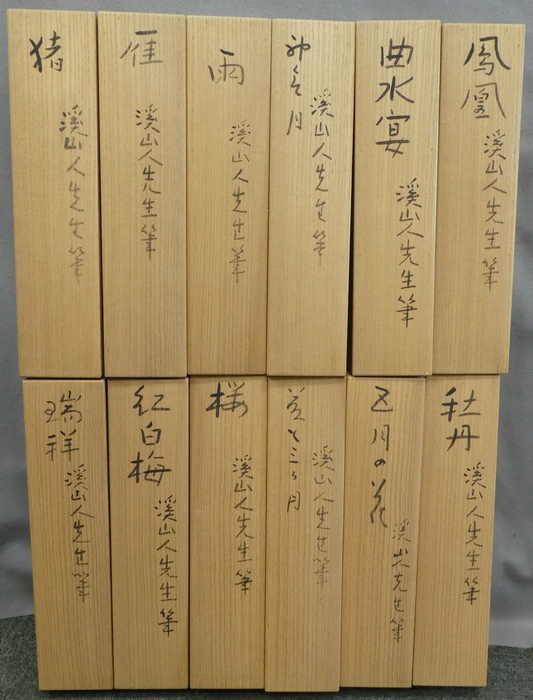 鳳凰
溪山人先生筆
曲水宴
溪山人先生筆
月
溪山人先生筆
雨
溪山人先生筆
雁
溪山人先生筆
猪
溪山人先生筆
牡丹
溪山人先生筆
五月の花
溪山人先生筆
と三ヶ月
溪山人先生筆
桜
溪山人先生筆
紅白梅
溪山人先生筆
瑞祥
溪山人先生筆